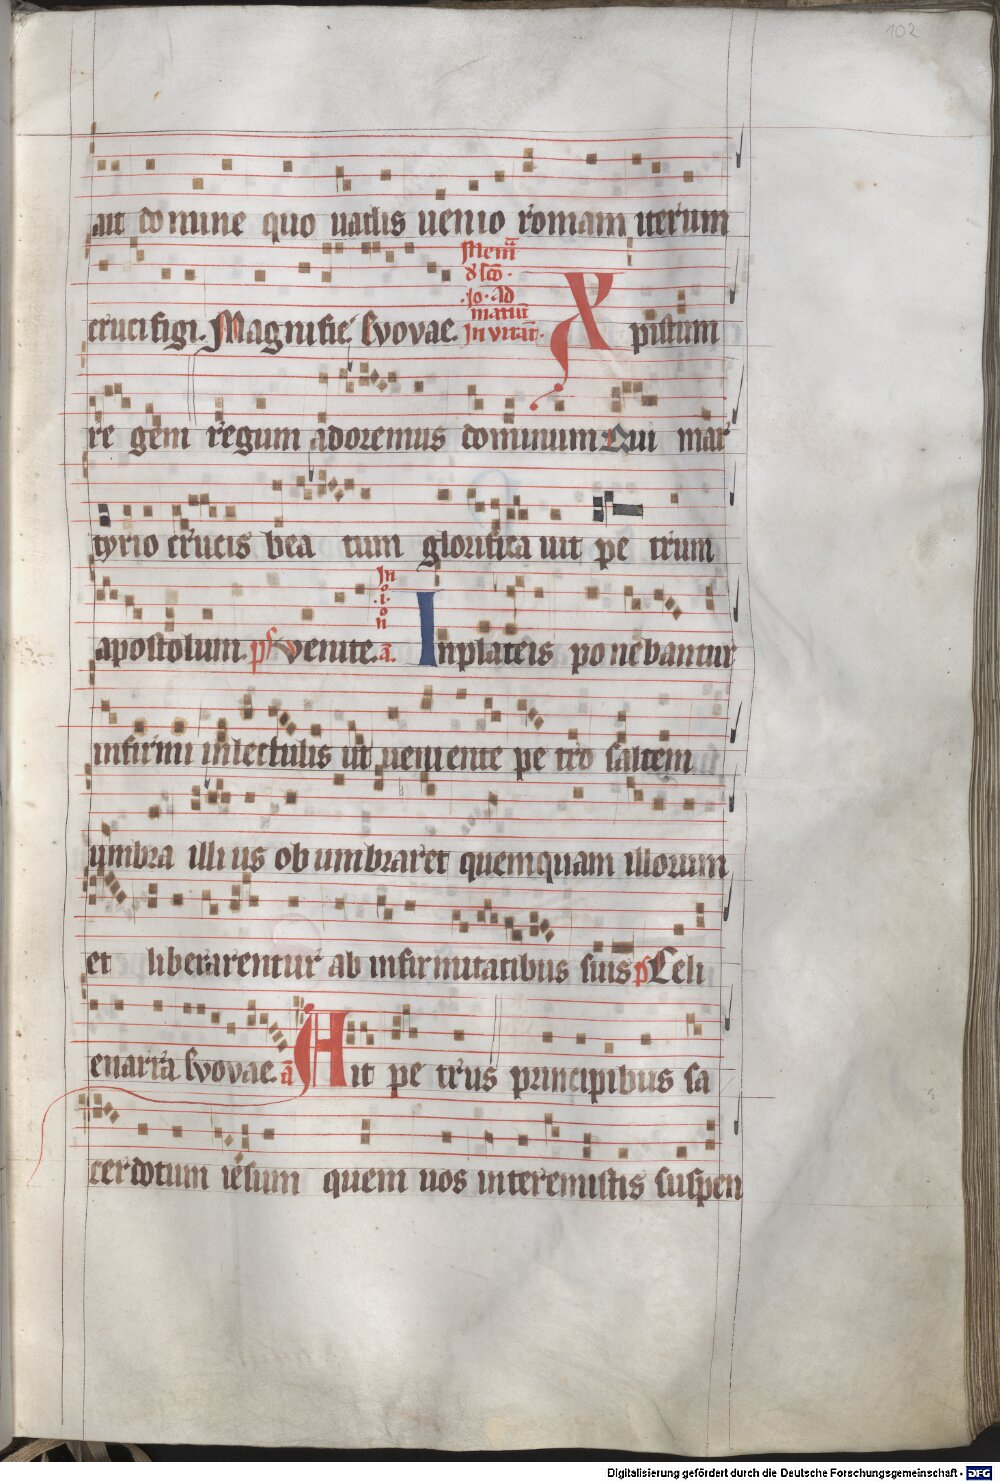 102
ait domine quo uadis uenio romam iterum
crucifigi. Magnific̄ Evovae. Mem̄ ā
de sc̄o.
.Jo. Ad
matut̄
Invitat̄. Xpistum
re gem regum adoremus dominum Qui mar
tyrio crucis bea tum glorifica uit pe trum
apostolum. ps Venite. In
.i.
on
ā. Inplateis ponebantur
infirmi inlectulis ut ueniente pe tro saltem
umbra illius obumbraret quemquam illorum
et liberarentur ab infirmitatibus suis ps Celi
enarra Evovae. ā Ait pe trus principibus sa
cerdotum iesum quem uos interemistis suspen
Digitalisierung gefördert durch die Deutsche Forschungsgemeinschaft - DFG